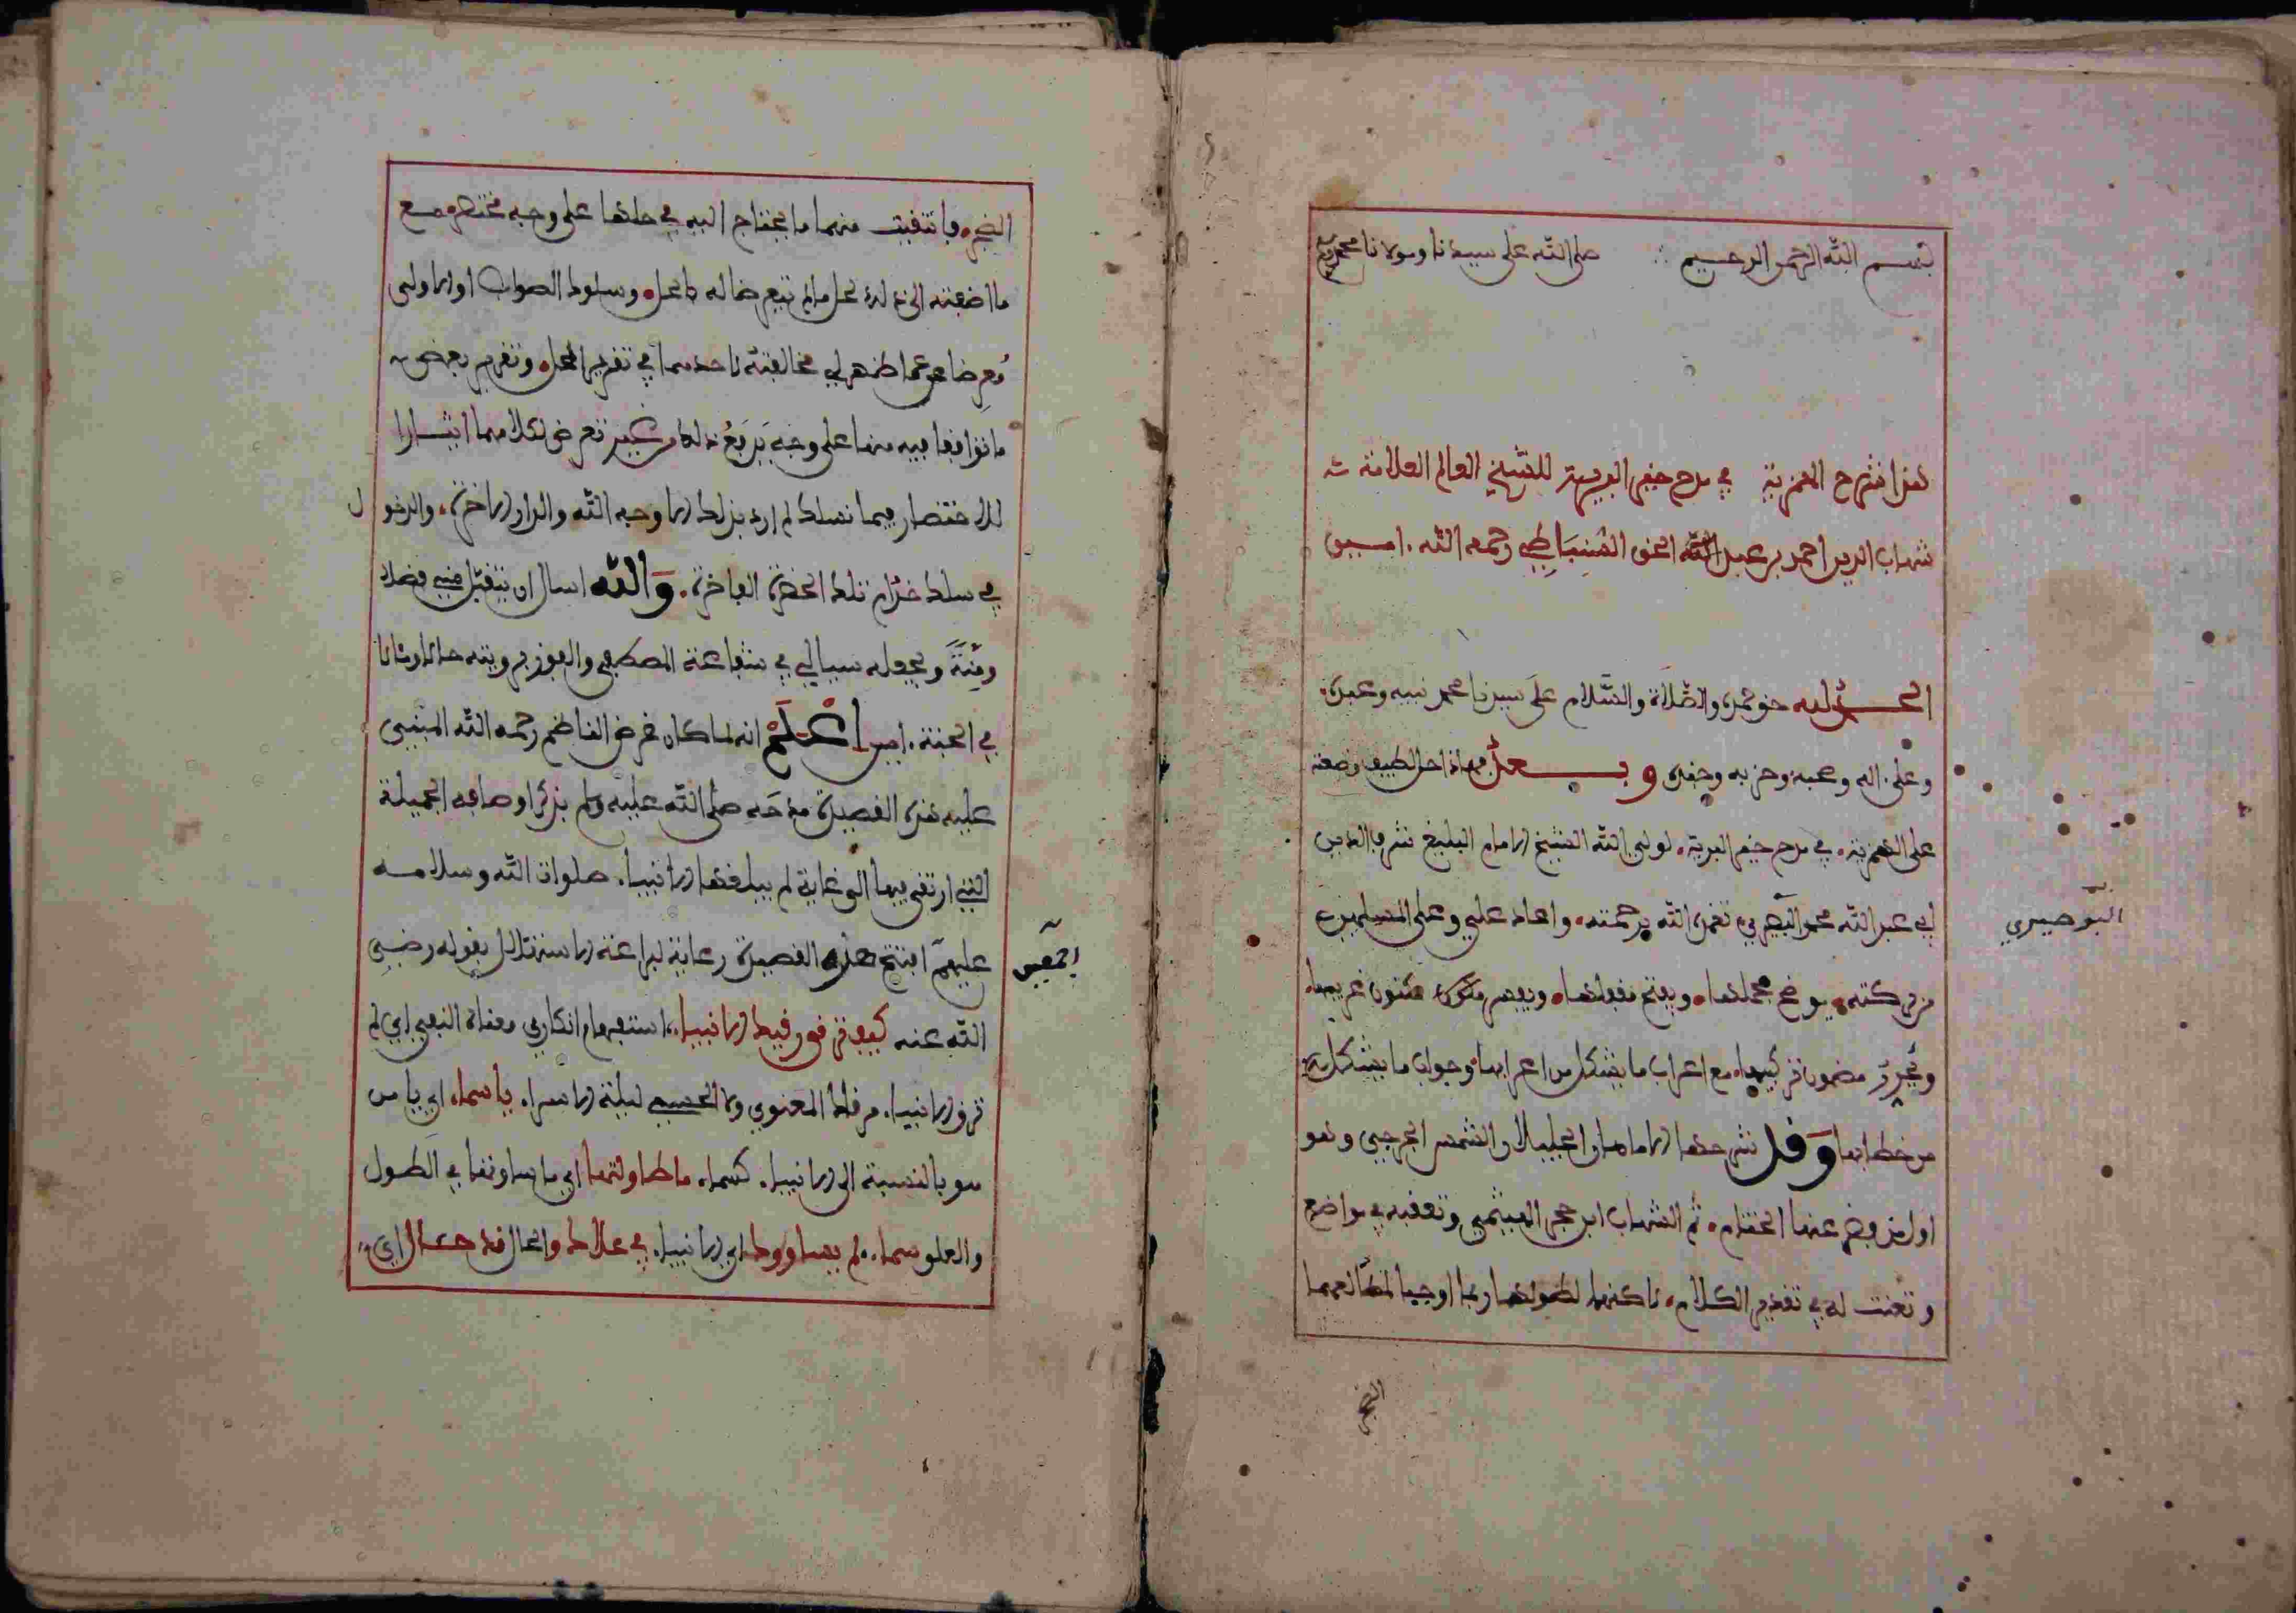 بسم الله الرحمن الرحيم صلى الله على سيدنا ومولانا محمد
هذا شرح الهمزية في مدح خير البرية للشيخ العالم العلامة
شهاب الدين احمد بن عبد الحق السنباطي رحمه الله امين
الحمد لله حق حمده والصلاة والسلام على سيدنا محمد نبيه وعبده
وعلى اله وصحبه وحزبه وجنده وبعد فهاذا حل لطيف وضعته
على الهمزية في مدح خير البرية لولي الله الشيخ الامام البليغ شرف الدين
ابي عبد الله محمد البصيري تغمده الله برحمته واعاد علي وعلى المسلمين
البوصيري
من بركته يوضح مجملها ويفتح مقفلها ويفسر مكنون غريبها
ويحرر مضمون تركيبها مع اعراب ما يشكل من اعرابها وجواب ما يشكل
من خطابها وقد شرحها الامامان الجليلان الشمس الجوجري وهو
اول من فض عنها الختام ثم الشهاب ابن حجر الهيثمي وتعقبه في مواضع
وتعنت له في تقديم الكلام لاكنهما لطولهما ربما اوجبا لمطالعهما
الضجر
الضجر فانتقيت منهما ما يحتاج اليه في حلها على وجه مختصر مع
ما اضفته الى ذلك لحل ما لم يتعرضا له بالحل وسلوك الصواب او الاولى
معرضا عما ظهر لي مخالفته لاحدهما في تقرير المحل وتقرير بعض
ما توافقا فيه منها على وجه يرفع ذلك من غير تعرض لكلامهما ايثارا
للاختصار فيما نسلك لم ارد بذلك الا وجه الله والدار الاخرة والدخول
في سلك خدام تلك الحضرة الفاخرة والله اسال ان يتقبل منيه فضلا
ومنة ويجعله سببا لي في شفاعة المصطفى والفوز برويته حالا ومئالا
في الجنة امين اعلم انه لما كان غرض الناظم رحمه الله المبني
عليه هذه القصيدة مدحه صلى الله عليه وسلم بذكر اوصافه الجميلة
التي ارتقى فيها الى غاية لم يبلغها الانبياء صلوات الله وسلامه
عليهم افتتح هذه القصيدة رعاية لبراعة الاستهلال بقوله رضي
اجمعين
الله عنه كيف ترقى رقيك الانبياء استفهام انكاري معناه النفي اي لم
ترق الانبياء مرقاك المعنوي ولا الحسي ليلة الاسراء يا سماء اي يا من
هو بالنسبة الى الانبياء كسماء ما طاولتها اي ما ساوتها في الطول
والعلو سماء لم يساووك اي الانبياء في علاك والحال قد حال اي